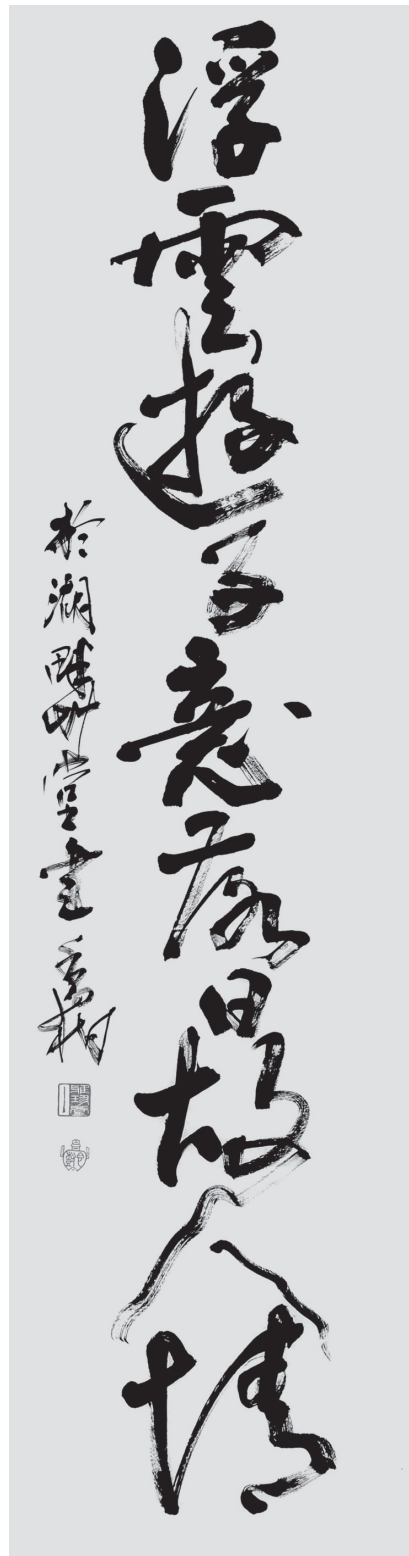 浮雲遊子意落日故人情
於湖畔草堂書 香樹